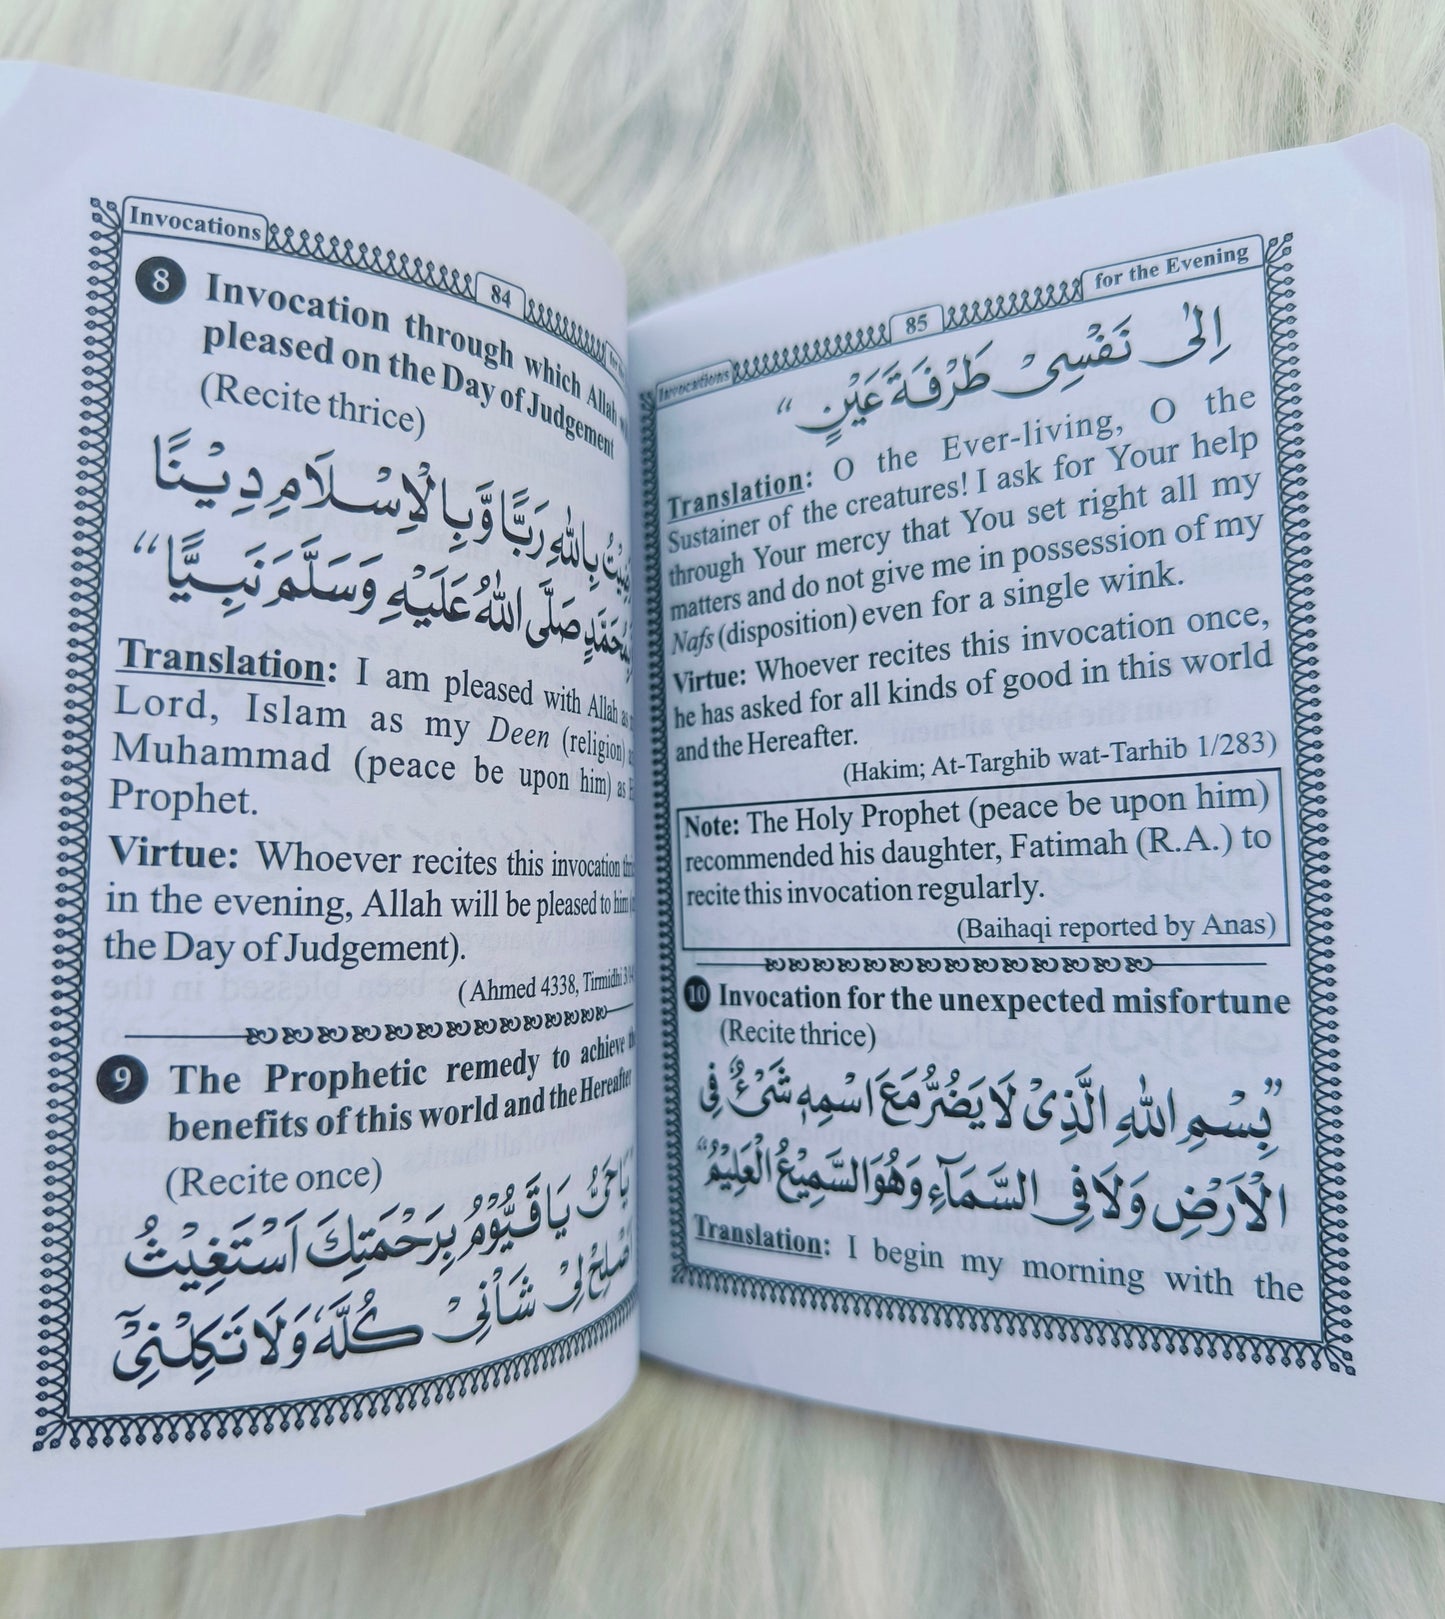 Invocations
84
8 Invocation through which Allah
pleased on the Day of Judgement
(Recite thrice)
بِاللّٰهِ رَبًّا وَّبِالْاِسْلَامِ دِيْنًا
صَلَّى اللّٰهُ عَلَيْهِ وَسَلَّمَ نَبِيًّا“
Translation: I am pleased with Allah as
Lord, Islam as my Deen (religion)
Muhammad (peace be upon him) as
Prophet.
Virtue: Whoever recites this invocation
in the evening, Allah will be pleased to him
the Day of Judgement).
(Ahmed 4338, Tirmidhi
9 The Prophetic remedy to achieve
benefits of this world and the Hereafter
(Recite once)
يَاحَىُّ يَاقَيُّوْمُ بِرَحْمَتِكَ اَسْتَغِيْثُ
اَصْلِحْ لِىْ شَاْنِىْ كُلَّهٗ وَلَا تَكِلْنِىْٓ
Invocations
85
for the Evening
اِلٰى نَفْسِىْ طَرْفَةَ عَيْنٍ “
Translation: O the Ever-living, O the
Sustainer of the creatures! I ask for Your help
through Your mercy that You set right all my
matters and do not give me in possession of my
Nafs (disposition) even for a single wink.
Virtue: Whoever recites this invocation once,
he has asked for all kinds of good in this world
and the Hereafter.
(Hakim; At-Targhib wat-Tarhib 1/283)
Note: The Holy Prophet (peace be upon him)
recommended his daughter, Fatimah (R.A.) to
recite this invocation regularly.
(Baihaqi reported by Anas)
10 Invocation for the unexpected misfortune
(Recite thrice)
”بِسْمِ اللّٰهِ الَّذِىْ لَا يَضُرُّ مَعَ اسْمِهٖ شَىْءٌ فِى
الْاَرْضِ وَلَا فِى السَّمَآءِ وَهُوَ السَّمِيْعُ الْعَلِيْمُ“
Translation: I begin my morning with the